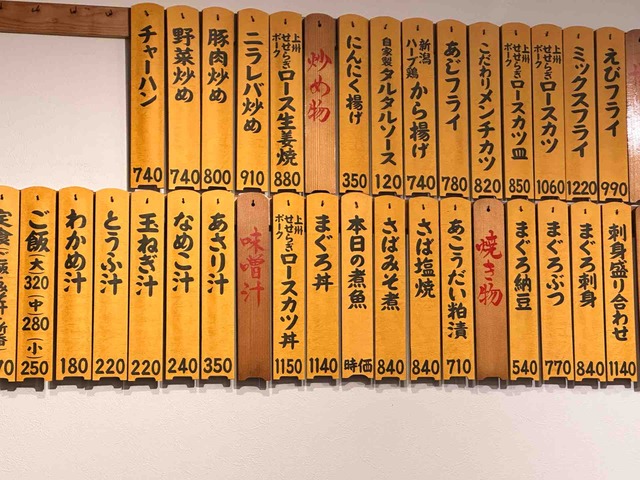 えびフライ 990
ミックスフライ 1220
上州せせらぎポーク ロースカツ 1060
上州せせらぎポーク ロースカツ皿 850
こだわりメンチカツ 820
あじフライ 780
新潟ハーブ鶏 から揚げ 740
自家製 タルタルソース 120
にんにく揚げ 350
炒め物
上州せせらぎポーク ロース生姜焼 880
ニラレバ炒め 910
豚肉炒め 800
野菜炒め 740
チャーハン 740
刺身盛り合わせ 1140
まぐろ刺身 840
まぐろぶつ 770
まぐろ納豆 540
焼き物
あこうだい粕漬 710
さば塩焼 840
さばみそ煮 840
本日の煮魚 時価
まぐろ丼 1140
上州せせらぎポーク ロースカツ丼 1150
味噌汁
あさり汁 350
なめこ汁 240
玉ねぎ汁 220
とうふ汁 220
わかめ汁 180
ご飯 (大) 320 (中) 280 (小) 250